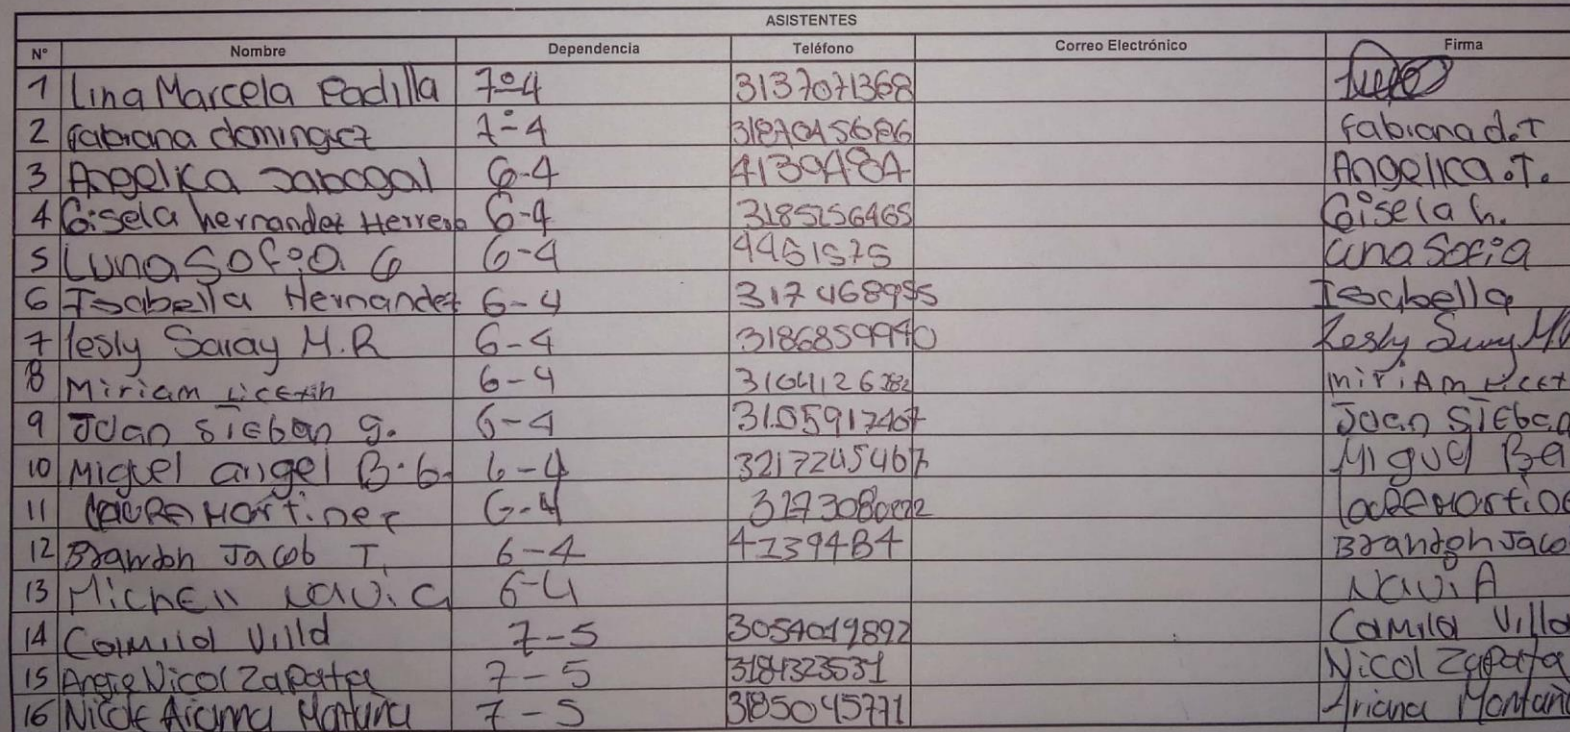 ASISTENTES
N° Nombre Dependencia Teléfono Correo Electrónico Firma
1 Lina Marcela Padilla 7º-4 3137071368
2 fabiana dominguez 7º-4 3187045686 fabiana d.T
3 Angelica Sabogal 6-4 4139484 Angelica.T.
4 Gisela hernandez Herrera 6-4 3185256465 Gisela h.
5 Luna Sofia G 6-4 4461575 Luna Sofia
6 Isabella Hernandez 6-4 317468955 Isabella
7 lesly Saray M.R 6-4 3186859940 Lesly
8 Miriam Liceth 6-4 miriAm Licet
9 Joan Sieban g. 6-4 3105917467 Joan Sieban
10 Miguel angel B.G. 6-4 3217245467 Miguel Be
11 laura Martinez 6-4 laura Martine
12 Brandon Jacob T. 6-4 4139484 Brandon Jaco
13 Michell Navia 6-4 NaviA
14 Camila Villa 7-5 3054049892 Camila Villa
15 Angie Nicol Zapata 7-5 3184323531 Nicol Zapata
16 Nicole Ariana Montaña 7-5 3185045771 Ariana Montaña